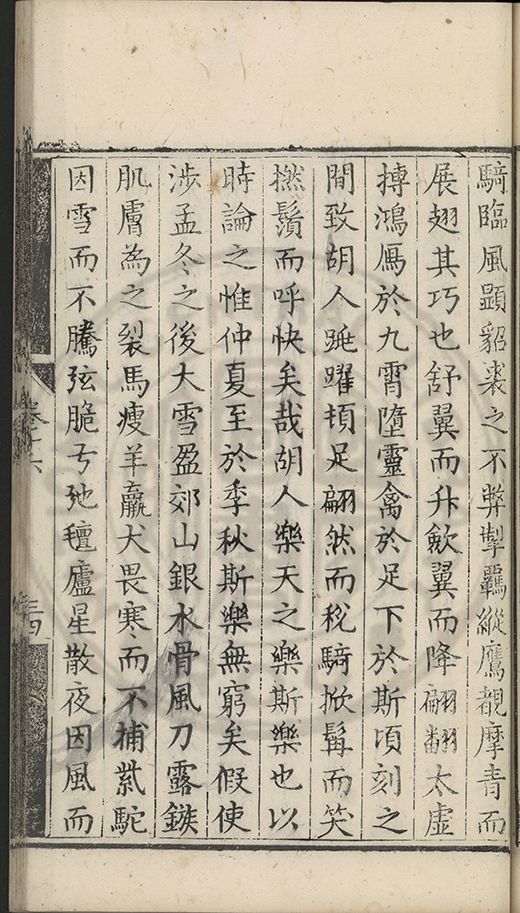 騎臨風顕貂裘之不弊掣羈縱鷹覩摩青而
展翅其巧也舒翼而升歛翼而降翩翻太虛
搏鴻鴈於九霄墮靈禽於足下於斯頃刻之
間致胡人踴躍頓足翩然而稅騎掀髯而笑
撚鬚而呼快矣哉胡人樂天之樂斯樂也以
時論之惟仲夏至於季秋斯樂無窮矣假使
涉孟冬之後大雪盈郊山銀水骨風刀露鏃
肌膚為之裂馬瘦羊羸犬畏寒而不捕紫駝
因雪而不騰弦脆弓弛氊廬星散夜因風而
卷十六
三四